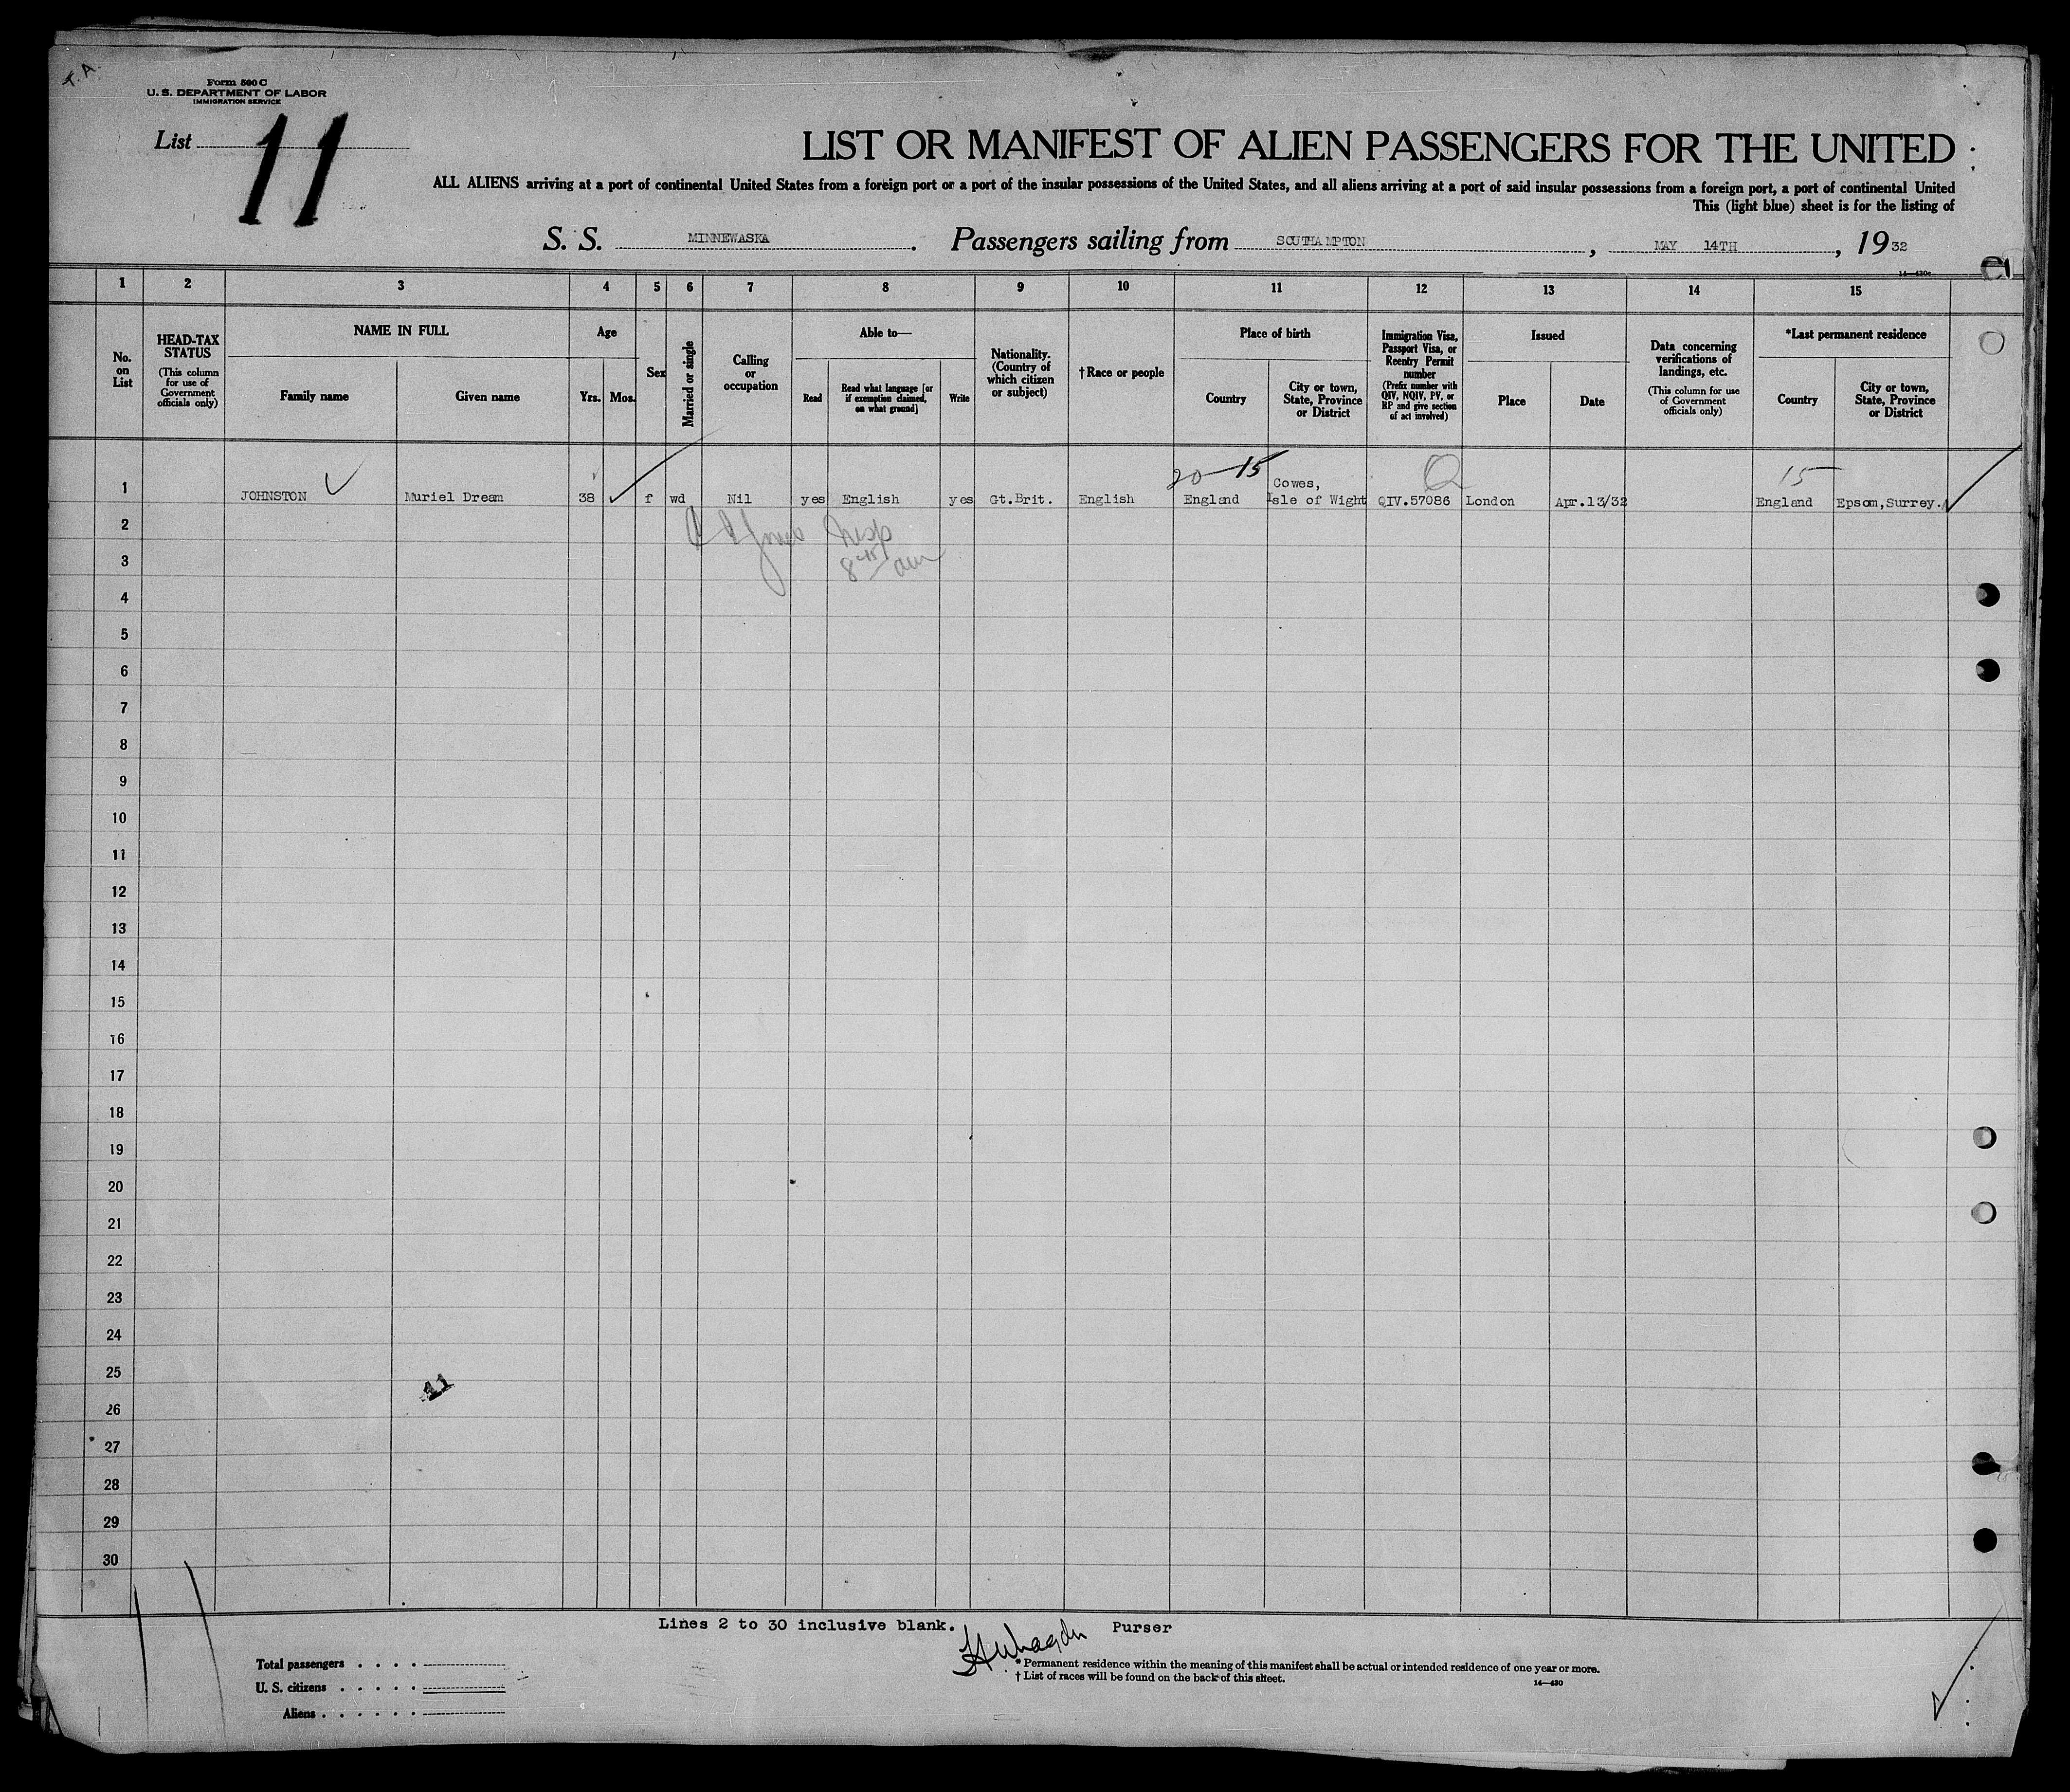 Form 500 C
U. S. DEPARTMENT OF LABOR
IMMIGRATION SERVICE
List 11
LIST OR MANIFEST OF ALIEN PASSENGERS FOR THE UNITED
ALL ALIENS arriving at a port of continental United States from a foreign port or a port of the insular possessions of the United States, and all aliens arriving at a port of said insular possessions from a foreign port, a port of continental United
This (light blue) sheet is for the listing of
S. S. MINNEWASKA. Passengers sailing from SOUTHAMPTON, MAY 14TH, 1932
14—430c
1 2 3 4 5 6 7 8 9 10 11 12 13 14 15
No. on List
HEAD-TAX STATUS
(This column for use of Government officials only)
NAME IN FULL
Family name
Given name
Age
Yrs.
Mos.
Sex
Married or single
Calling or occupation
Able to—
Read
Read what language [or if exemption claimed, on what ground]
Write
Nationality. (Country of which citizen or subject)
†Race or people
Place of birth
Country
City or town, State, Province or District
Immigration Visa, Passport Visa, or Reentry Permit number
(Prefix number with QIV, NQIV, PV, or RP and give section of act involved)
Issued
Place
Date
Data concerning verifications of landings, etc.
(This column for use of Government officials only)
*Last permanent residence
Country
City or town, State, Province or District
20-15 Q 15
1 JOHNSTON Muriel Dream 38 f wd Nil yes English yes Gt.Brit. English England Cowes, Isle of Wight QIV.57086 London Apr.13/32 England Epsom,Surrey.
2
3
8 45 am
4
5
6
7
8
9
10
11
12
13
14
15
16
17
18
19
20
21
22
23
24
25
26
27
28
29
30
Lines 2 to 30 inclusive blank. Purser
Total passengers . . . .
U. S. citizens . . . . .
Aliens . . . . . .
* Permanent residence within the meaning of this manifest shall be actual or intended residence of one year or more.
† List of races will be found on the back of this sheet.
14—430